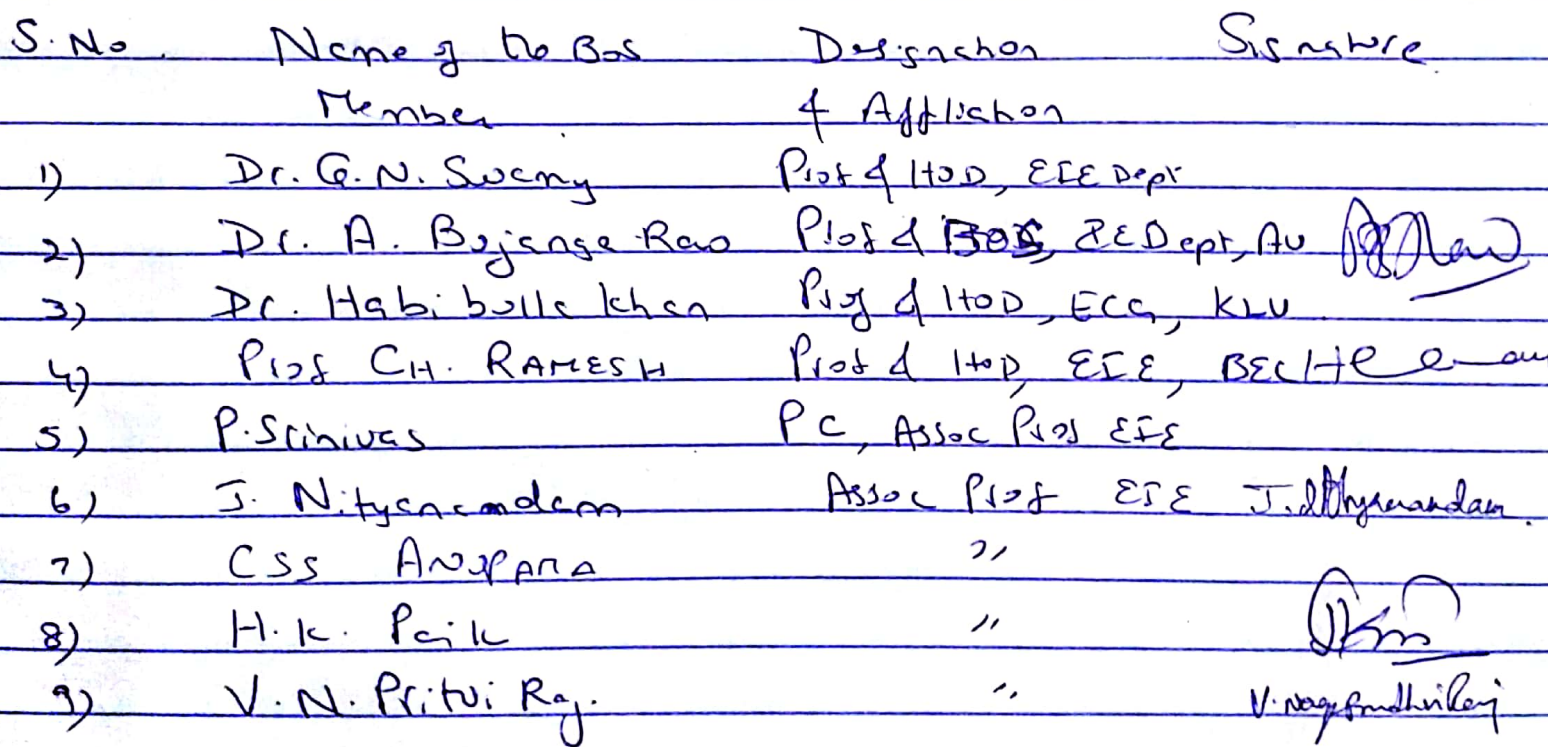 S.No Name of the BoS Designation Signature
Member & Affliation
1) Dr. G. N. Swamy Prof & HOD, EIE Dept
2) Dr. A. Bujanga Rao Prof & BOS, Dept, AU
3) Dr. Habibulla khan Prof & HOD, ECE, KLU
4) Prof CH. RAMESH Prof & HOD, EIE, BEC
5) P. Srinivas PC, Assoc Prof EIE
6) J. Nityanandam Assoc Prof EIE J. Nityanandam.
7) CSS ANUPAMA "
8) H. K. Paik "
9) V. N. Pritvi Raj. "